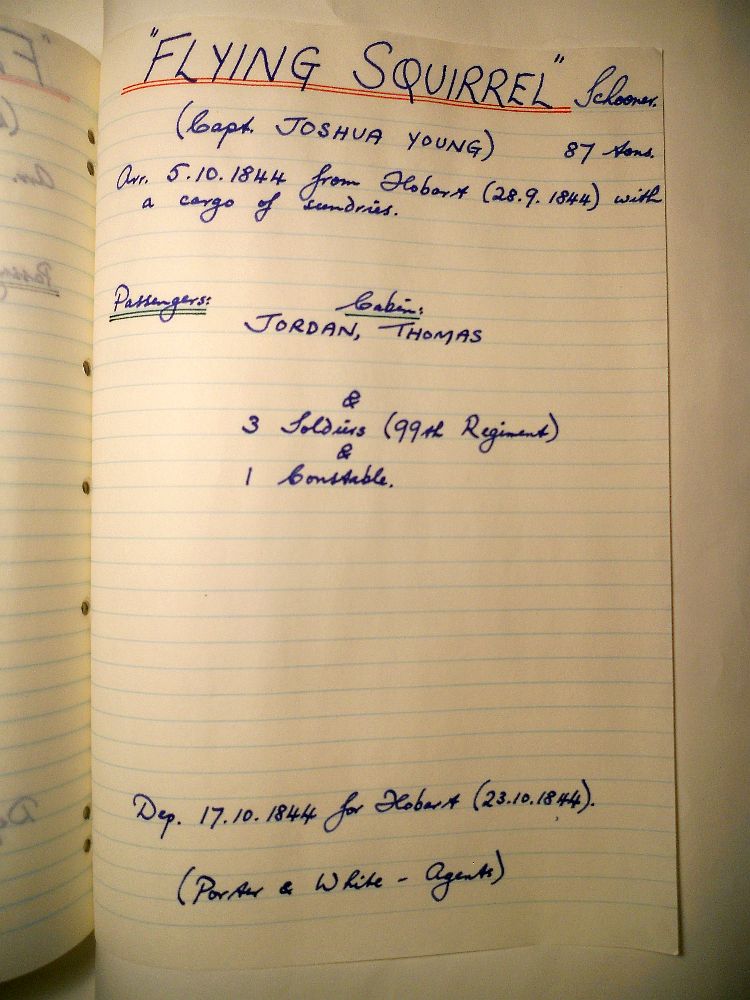 "FLYING SQUIRREL" Schooner.
(Capt. JOSHUA YOUNG) 87 tons.
Arr. 5.10.1844 from Hobart (28.9.1844) with
a cargo of sundries.
Passengers: Cabin:
JORDAN, THOMAS
&
3 Soldiers (99th Regiment)
&
1 Constable.
Dep. 17.10.1844 for Hobart (23.10.1844).
(Porter & White - Agents)